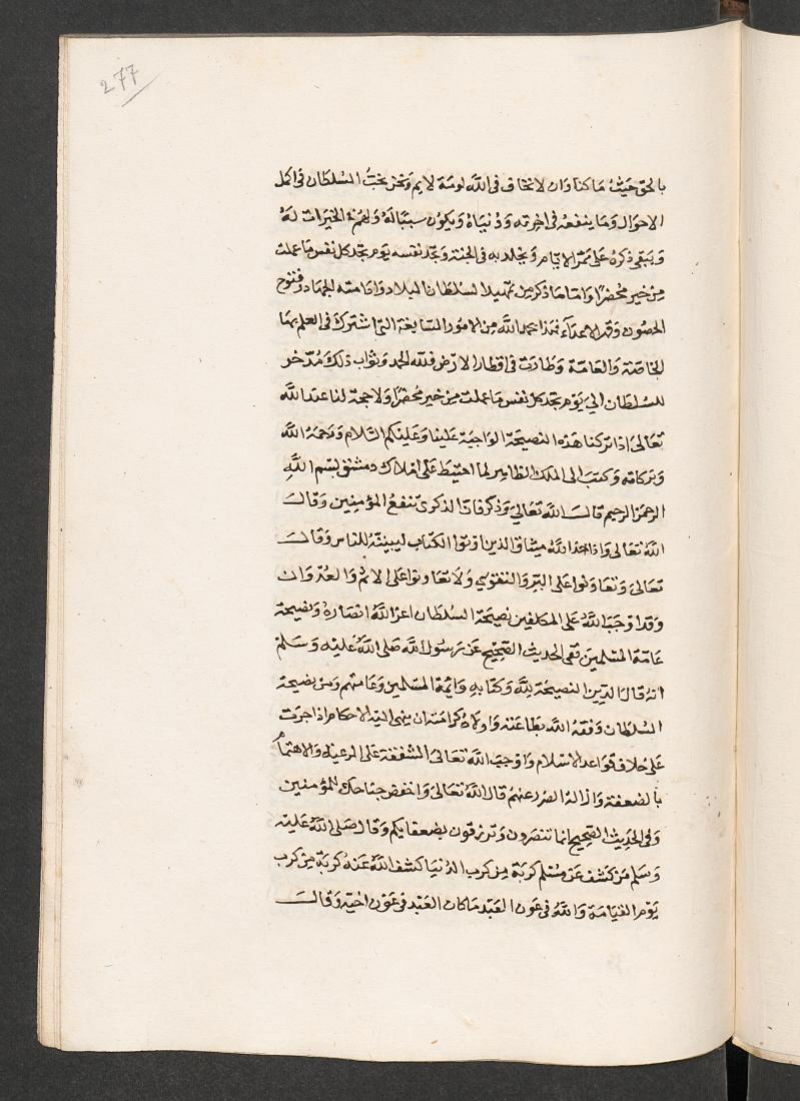 277
بالحق حيث ما كنا وان لا نخاف في الله لومة لايم ونحن نحب السلطان في اكمل
الاحوال وما ينفعه في اخرته ودنياه ويكون سببا له وليفهم الخيرات له
ويبقى ذكره على ممر الايام ويخلد به في الجنة وتجد نفسه يوم تجد كل نفس ما عملت
من خير محضرا واما ما ذكر من تمهيد السلطان البلاد وادامته الجهاد وفتوح
الحصون وقهر الاعداء فهذا بحمد الله من الامور الشايعة التي اشترك في العلم بها
الخاصة والعامة وطارت في اقطار الارض فلله الحمد وثواب ذلك مدخر
للسلطان الي يوم تجد كل نفس ما عملت من خير محضرا ولا حجة لنا عند الله
تعالى اذا تركنا هذه النصيحة الواجبة علينا وعليكم السلام ورحمة الله
وبركاته وكتب الى الملك الظاهر لما احتيط على املاك دمشق بسم الله
الرحمن الرحيم قال الله تعالي وذكر فان الذكرى تنفع المؤمنين وقال
الله تعالى واذ اخذ الله ميثاق الذين اوتوا الكتاب ليبيننه للناس وقال
تعالى وتعاونوا على البر والتقوي ولا تعاونوا على الاثم والعدوان
وقد اوجب الله على المكلفين نصيحة السلطان اعز الله انصاره ونصيحة
عامة المسلمين ففي الحديث الصحيح عن رسول الله صلى الله عليه وسلم
انه قال الدين النصيحة لله وكتابه وائمة المسلمين وعامتهم ومن نصيحة
السلطان وفقه الله بطاعته واولاه كرامته ان ينهى اليه الاحكام اذا جرت
على خلاف قواعد الاسلام واوجب الله تعالى الشفقة على الرعية والاهتمام
بالضعفة وازالة الضرر عنهم قال الله تعالى واخفض جناحك للمؤمنين
وفي الحديث الصحيح انما تنصرون وترزقون بضعفايكم وقال صلى الله عليه
وسلم من كشف عن مسلم كربة من كرب الدنيا كشف الله عنه كربة من كرب
يوم القيامة والله في عون العبد ما كان العبد في عون اخيه وقال